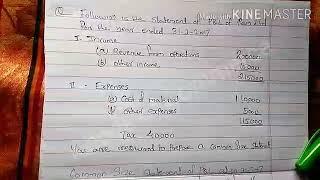 KINEMASTER
Q Following is the statement of P&L of
for the year ended 31-3-2017
I. Income
(a) Revenue from operations 200000
(b) Other income
II - Expenses
(a) Cost of material 110000
(b) other expenses 5000
115000
Tax 40000
You are required to prepare a common size statement
Common Size Statement of P&L